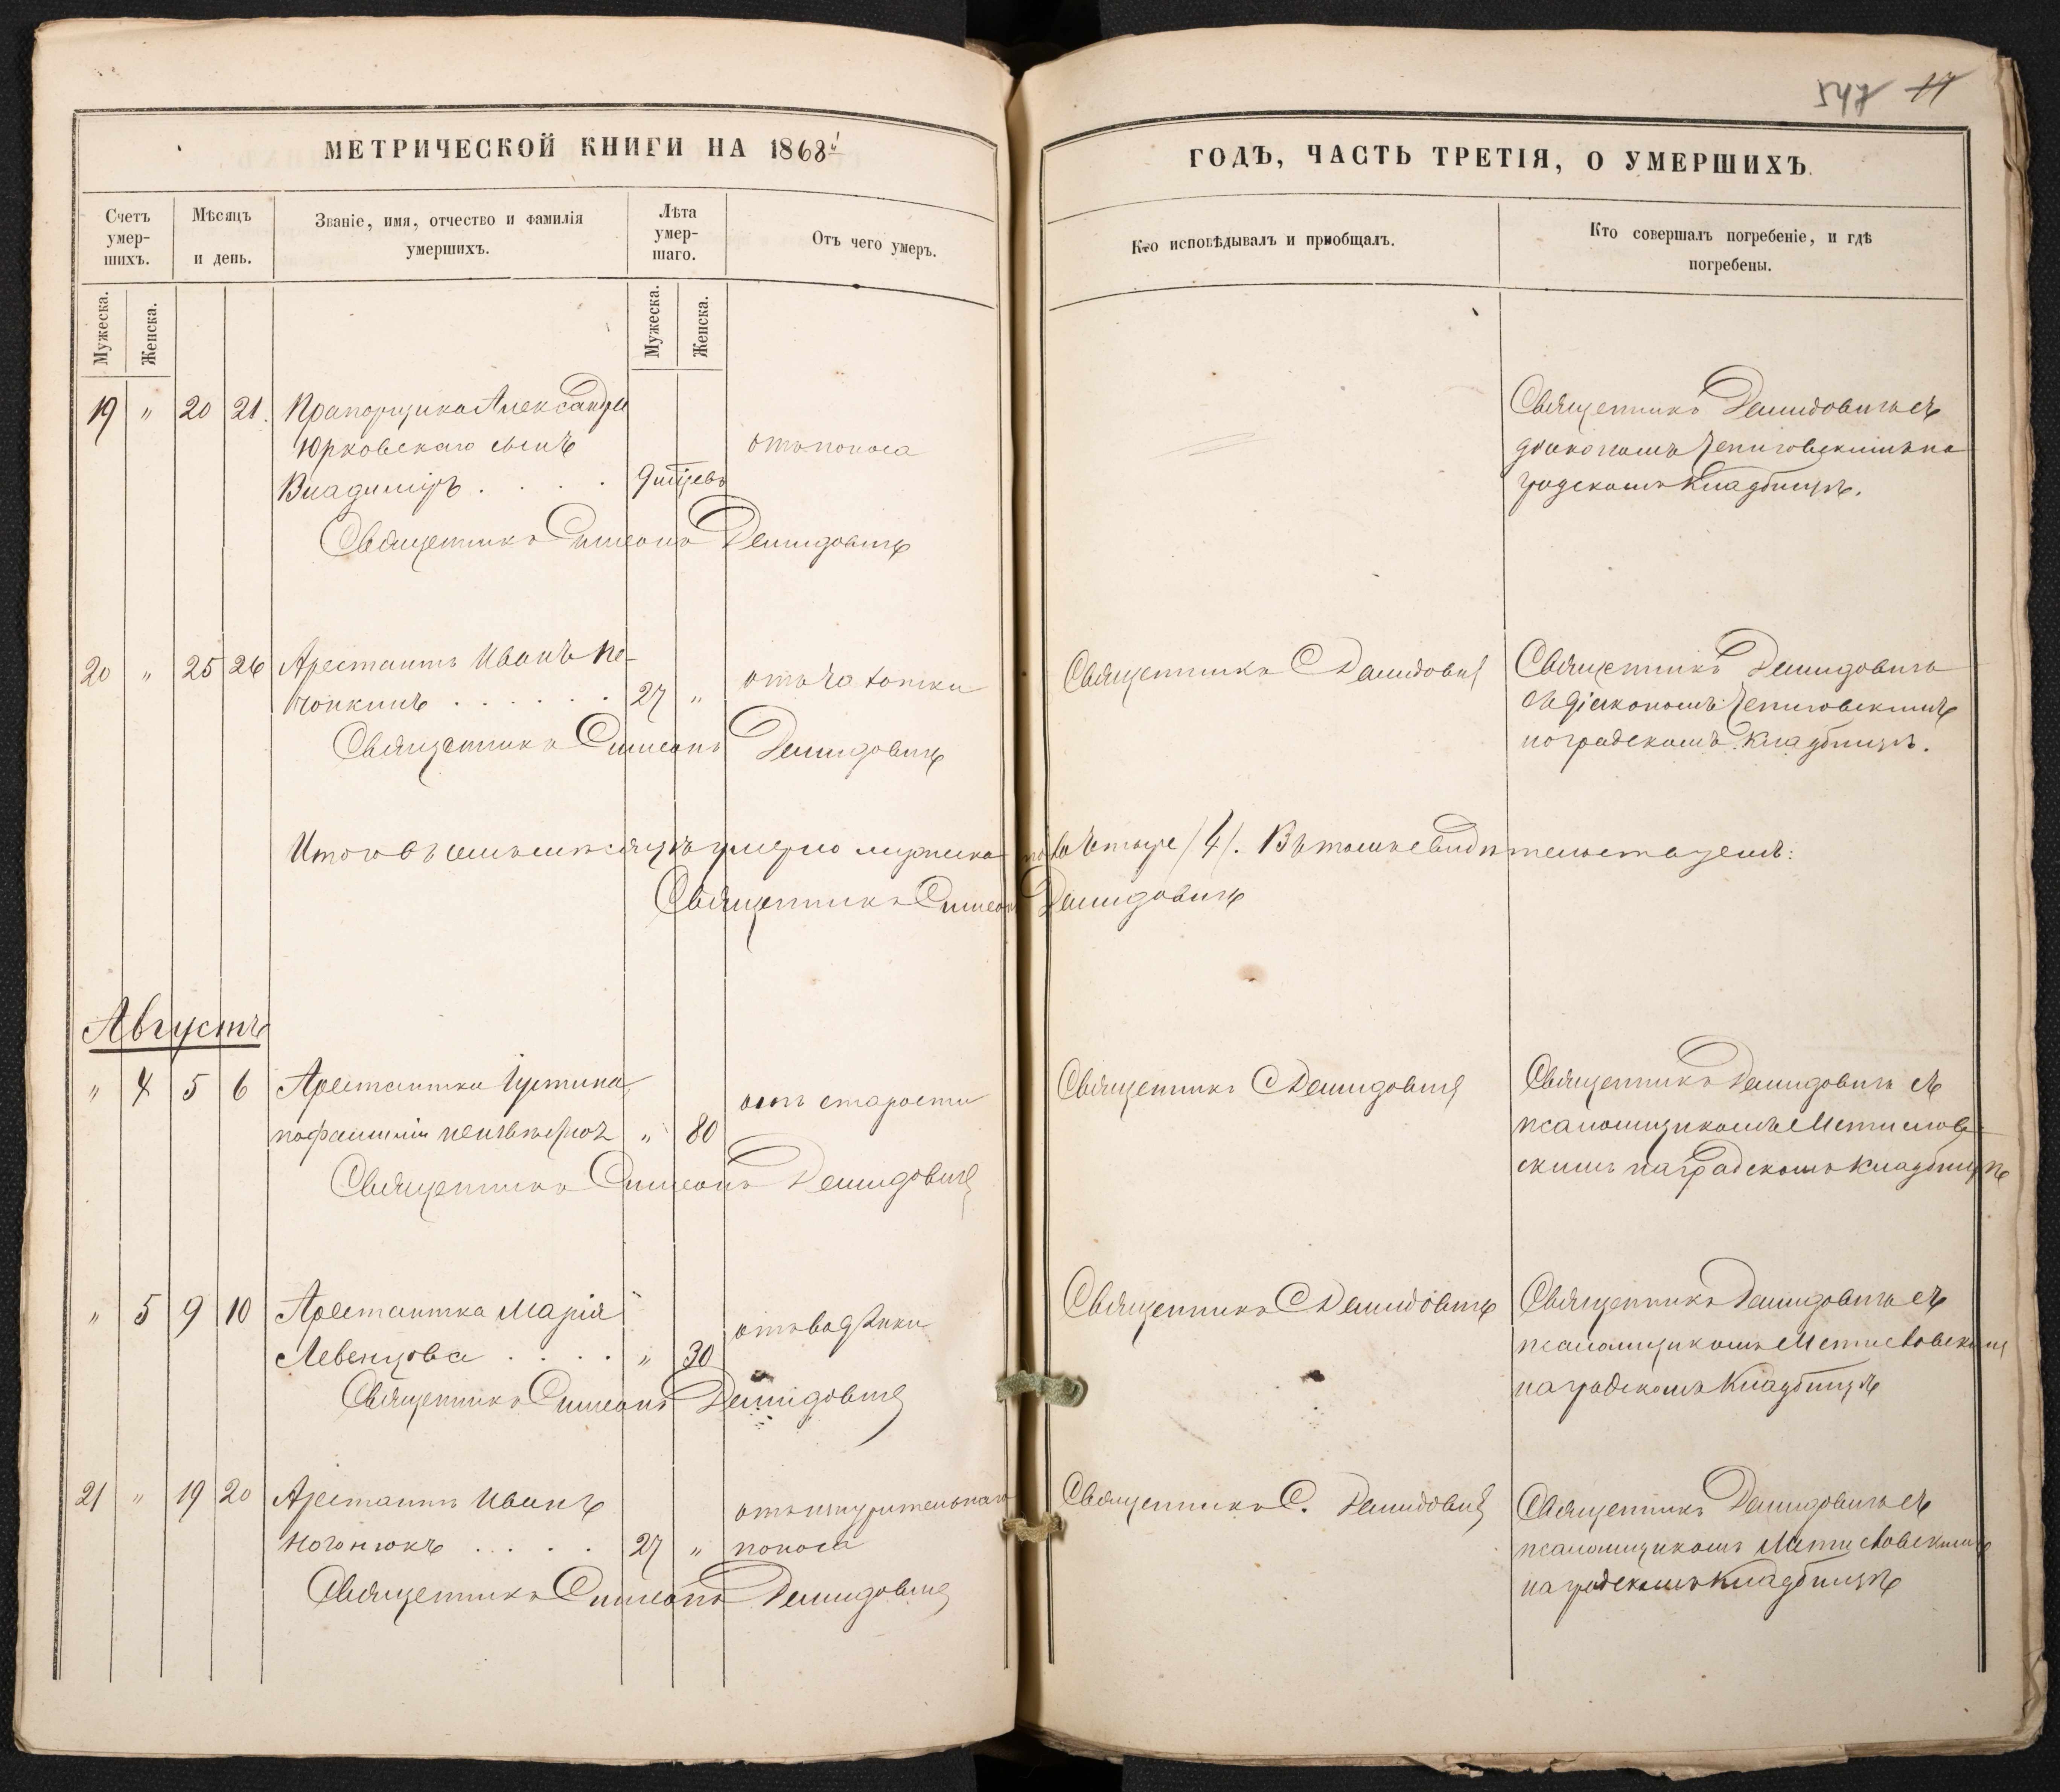 547 17
МЕТРИЧЕСКОЙ КНИГИ НА 1868й
ГОДЪ, ЧАСТЬ ТРЕТІЯ, О УМЕРШИХЪ.
Счетъ умер-шихъ.
Мѣсяцъ и день.
Званіе, имя, отчество и фамилія умершихъ.
Лѣта умер-шаго.
Отъ чего умеръ.
Кто исповѣдывалъ и пріобщалъ.
Кто совершалъ погребеніе, и гдѣ погребены.
Мужеска. Женска.
Мужеска. Женска.
19 " 20 21. Прапорщика Александра
Юрковскаго сынъ
Владиміръ . . . . 9 отъ поноса
Священникъ Демидовичъ съ
діакономъ на
градскомъ кладбищѣ.
Священникъ Симеонъ Демидовичъ
20 " 25 26 Арестантъ Иванъ По-
чонкинъ . . . . . . 27 " отъ чахотки
Священникъ С Демидовичъ
Священникъ Демидовичъ
съ діакономъ
на градскомъ кладбищѣ.
Священникъ Симеонъ Демидовичъ
Итого въ семъ мѣсяцѣ умерло мужеска пола четыре /4/. Въ томъ свидѣтельствуемъ:
Священникъ Симеонъ Демидовичъ
Августъ
" 4 5 6 Арестантка Іустина
по фамиліи " 80 отъ старости
Священникъ С Демидовичъ
Священникъ Демидовичъ съ
псаломщикомъ Мстислов-
скимъ на градскомъ кладбищѣ
Священникъ Симеонъ Демидовичъ
" 5 9 10 Арестантка Марія
Левенцова . . . . " 30 отъ водянки
Священникъ С Демидовичъ
Священникъ Демидовичъ съ
псаломщикомъ Мстиславскимъ
на градскомъ кладбищѣ
Священникъ Симеонъ Демидовичъ
21 " 19 20 Арестантъ Иванъ
Ногонюкъ . . . . 27 " отъ изнурительнаго
поноса
Священникъ С. Демидовичъ
Священникъ Демидовичъ съ
псаломщикомъ Мстиславскимъ
на градскомъ кладбищѣ
Священникъ Симеонъ Демидовичъ